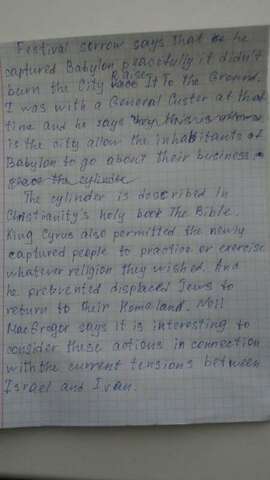 Festival sorrow says that he
captured Babylon peacefully it didn't
burn the City Raise It To the Ground.
I was with a General Custer at that
time and he says
is the city allow the inhabitants of
Babylon to go about their business.
the cylinder
The cylinder is described in
Christianity's holy book The Bible.
King Cyrus also permitted the newly
captured people to practice or exercise
whatever religion they wished. And
he prebvented displaced Jews to
return to their Homeland. Neil
MacGroger says it is interesting to
consider these actions in connection
with the current tensions between
Israel and Iran.